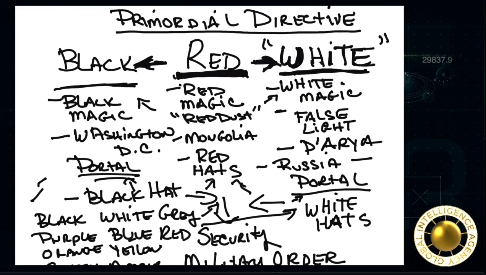 PRIMORDIAL DIRECTIVE
BLACK RED "WHITE"
- BLACK MAGIC
- WASHINGTON D.C.
PORTAL
- BLACK HAT
BLACK WHITE GREY
PURPLE BLUE RED
ORANGE YELLOW
- RED MAGIC
"RED DUST"
- MONGOLIA
- RED HATS
SECURITY
MILITARY ORDER
- WHITE MAGIC
- FALSE LIGHT
- D'ARYA
- RUSSIA -
PORTAL
WHITE HATS
29837.9
GLOBAL INTELLIGENCE AGENCY